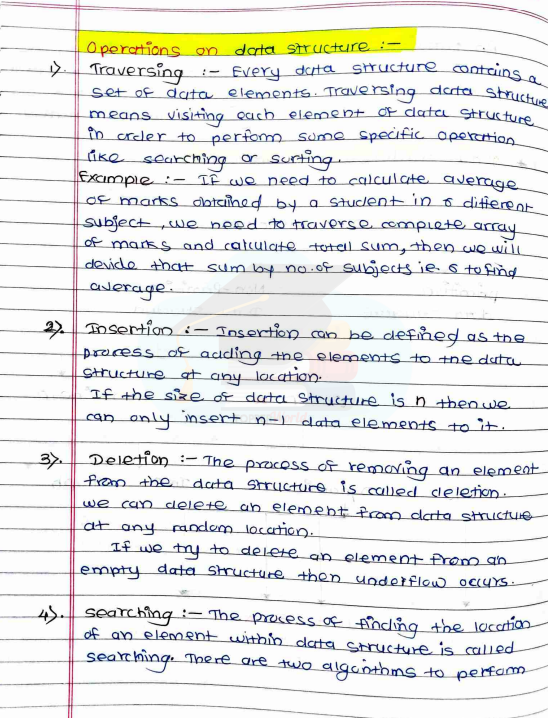 Operations on data structure :-
1). Traversing :- Every data structure contains a
set of data elements. Traversing data structure
means visiting each element of data structure
in order to perform some specific operation
like searching or sorting.
Example :- If we need to calculate average
of marks obtained by a student in 6 different
subject, we need to traverse complete array
of marks and calculate total sum, then we will
devide that sum by no. of subjects i.e. 6 to find
average.
2). Insertion :- Insertion can be defined as the
process of adding the elements to the data
structure at any location.
If the size of data structure is n then we
can only insert n-1 data elements to it.
3). Deletion :- The process of removing an element
from the data structure is called deletion.
we can delete an element from data structure
at any random location.
If we try to delete an element from an
empty data structure then underflow occurs.
4). searching :- The process of finding the location
of an element within data structure is called
searching. There are two algorithms to perform